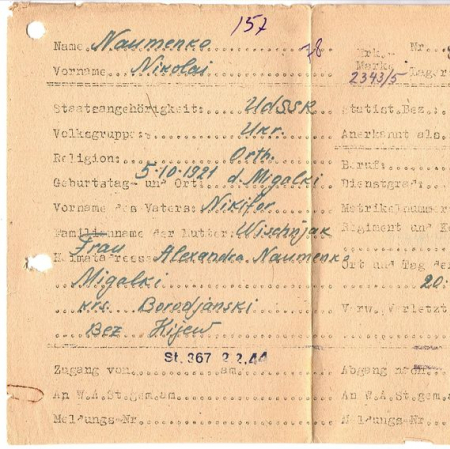 157
Name Naumenko
78
Erk.-
Marke
2343/5
Nr.
Lager
Vorname Nikolai
Staatsangehörigkeit: UdSSR
Statist.Bez.:
Volksgruppe: Ukr.
Anerkannt als
Religion: Orth.
Beruf:
Geburtstag- und Ort: 5.10.1921 d. Migalki
Dienstgrad:
Vorname des Vaters: Nikifor
Matrikelnummer
Familienname der Mutter: Wischnjak
Regiment und
Frau
Heimatadresse: Alexandra Naumenko
Ort und Tag der
Migalki
20.
krs. Borodjanski
Verw. Verletzt
Bez Kijew
St. 367 2 2.44
Zugang von am
Abgang nach
An W.A.St.gem.am
An W.A.St.gem.am
Meldungs-Nr.
Meldungs-Nr